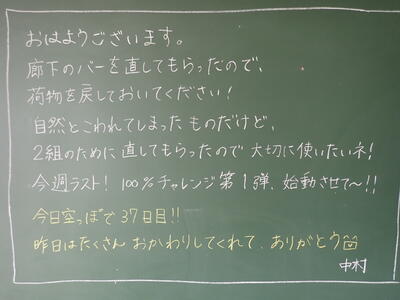 おはようございます。
廊下のバーを直してもらったので、
荷物を戻しておいてください！
自然とこわれてしまったものだけど、
2組のために直してもらったので大切に使いたいネ！
今週ラスト！100%チャレンジ第1弾、始動させて〜!!
今日空っぽで37日目!!
昨日はたくさんおかわりしてくれて、ありがとう
中村